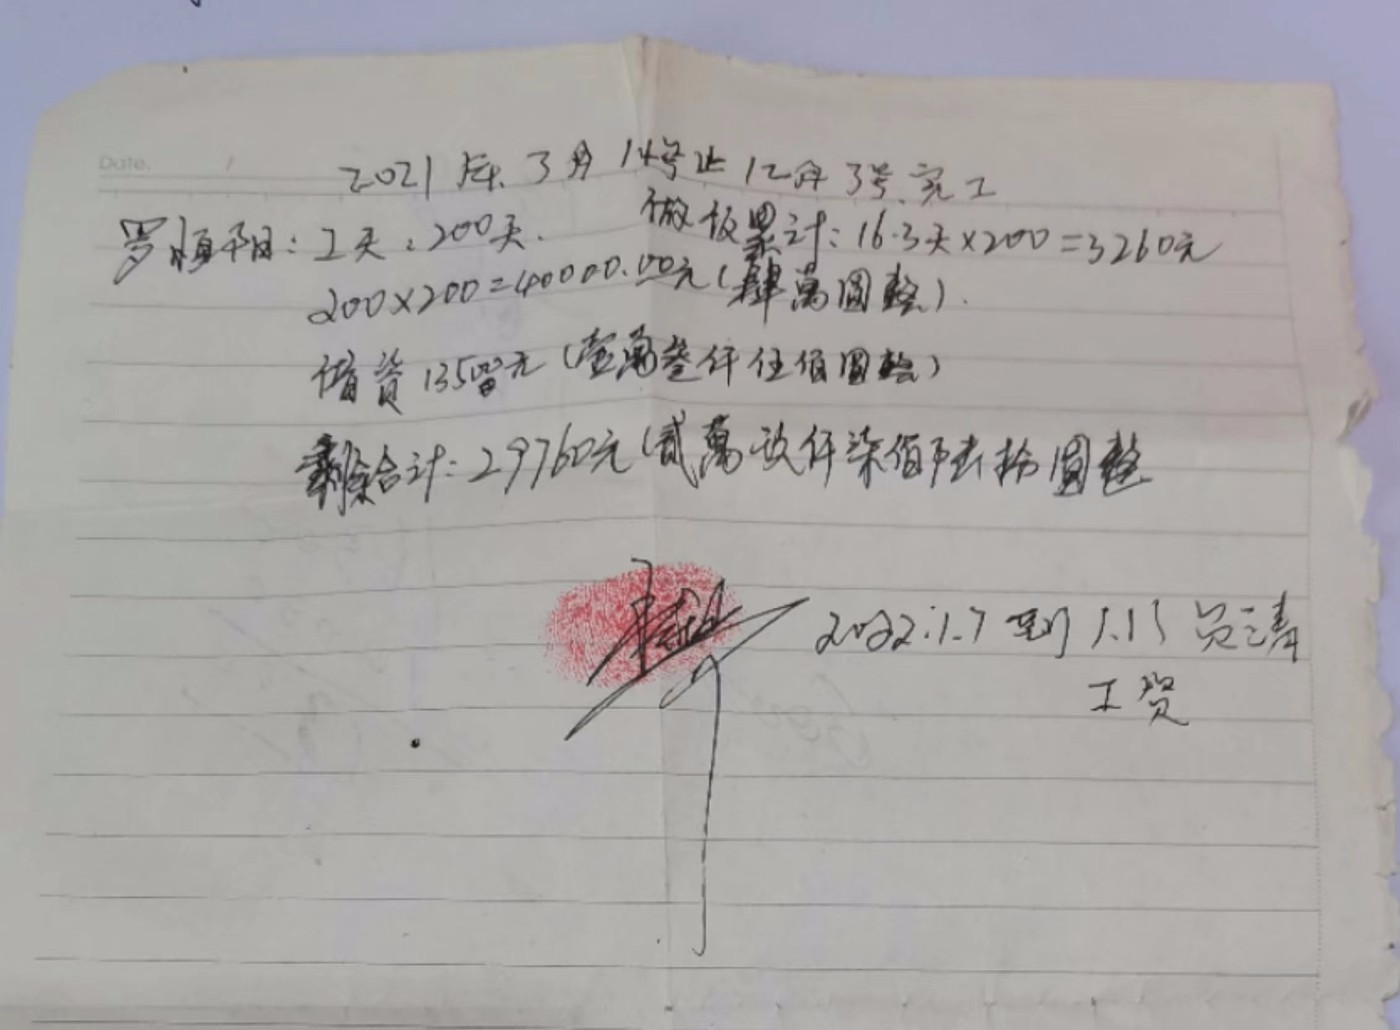 Date.
2021年.3月14号止12月3号.完工
罗顺平日：工天：200天.
做饭累计：16.3天×200=3260元
200×200=40000.00元(肆萬圓整).
借資13500元(壹萬叁仟伍佰圓整)
剩余合计：29760元(貳萬玖仟柒佰陆拾圓整
2022.1.7到1.15
工资